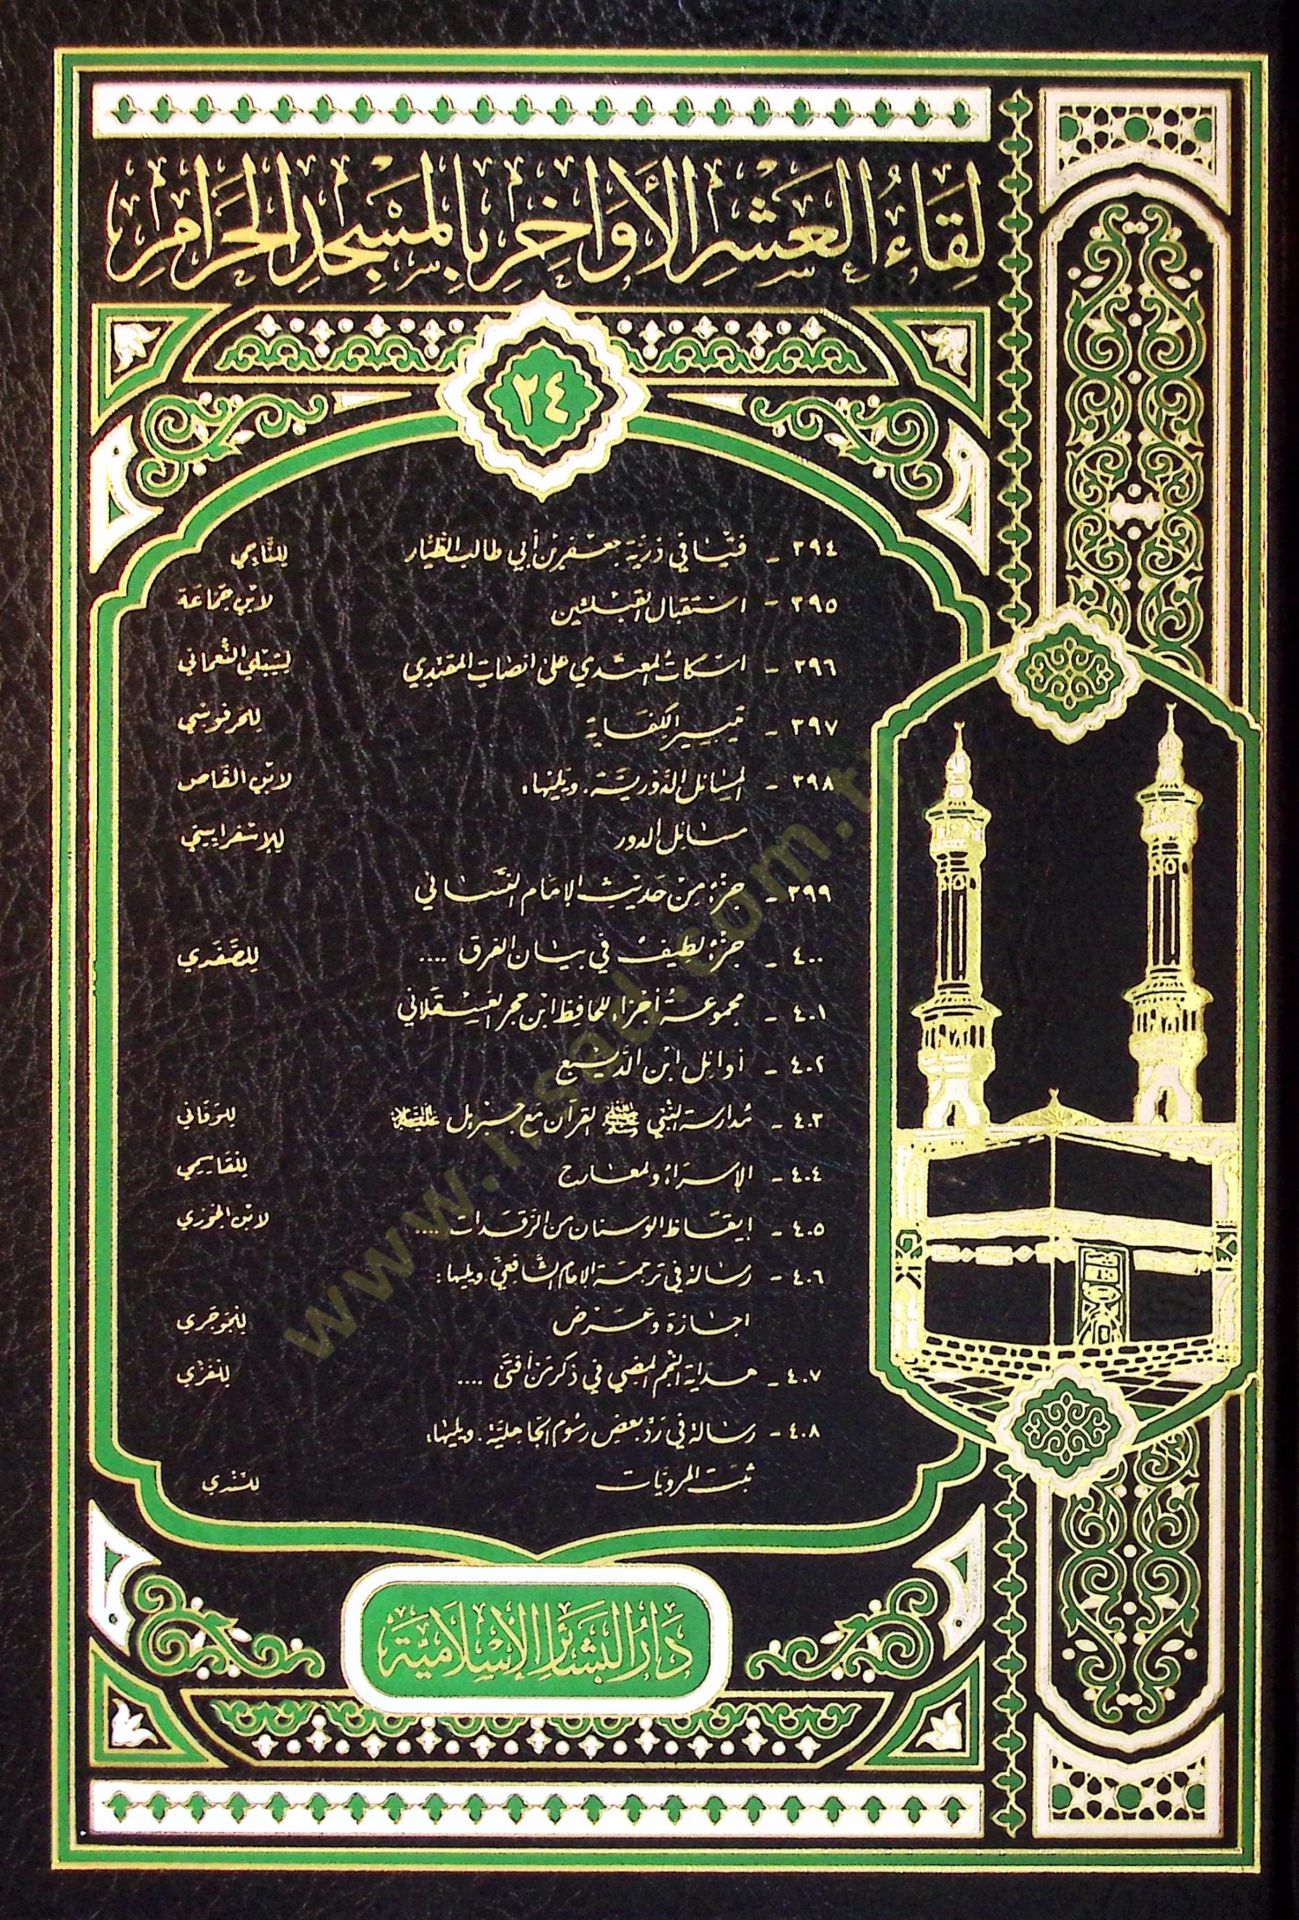 لِقَاءُ العَشْرِ الأَوَاخِرِ بِالمَسْجِدِ الحَرَامِ
٢٤
٣٩٤ - فتيا في ذرية جعفر بن أبي طالب الطيّار للناجي
٣٩٥ - استقبال القبلتين لابن جماعة
٣٩٦ - اسكات المعتدي على انصات المقتدي لشبلي النعماني
٣٩٧ - تيسير الكفاية للحرفوشي
٣٩٨ - المسائل الدورية. ويليها: لابن القاص
مسائل الدور للإسفراييني
٣٩٩ - جزء من حديث الإمام النسائي
٤٠٠ - جزء لطيف في بيان الفرق .... للصفدي
٤٠١ - مجموعة أجزاء للحافظ ابن حجر العسقلاني
٤٠٢ - أوائل ابن الديبع
٤٠٣ - مدارسة النبي ﷺ القرآن مع جبريل عليه السلام للوفائي
٤٠٤ - الإسراء والمعارج للقاسمي
٤٠٥ - إيقاظ الوسنان من الرقدات .... لابن الجوزي
٤٠٦ - رسالة في ترجمة الإمام الشافعي. ويليها:
اجازة وعرض للجوجري
٤٠٧ - هداية النجم المضي في ذكر من أفتى .... للغزي
٤٠٨ - رسالة في ردّ بعض رسوم الجاهلية. ويليها:
ثبت المرويات للسندي
دَارُ البَشَائِرِ الإِسْلَامِيَّة